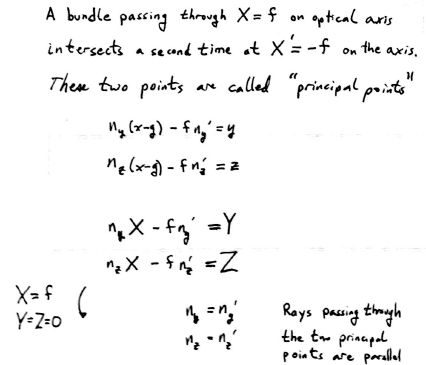 A bundle passing through X = f on optical axis
intersects a second time at X' = -f on the axis.
These two points are called "principal points"
n_y (x-g) - f n_y' = y
n_z (x-g) - f n_z' = z
n_y X - f n_y' = Y
n_z X - f n_z' = Z
X = f
Y=Z=0
n_y = n_y'
n_z = n_z'
Rays passing through
the two principal
points are parallel